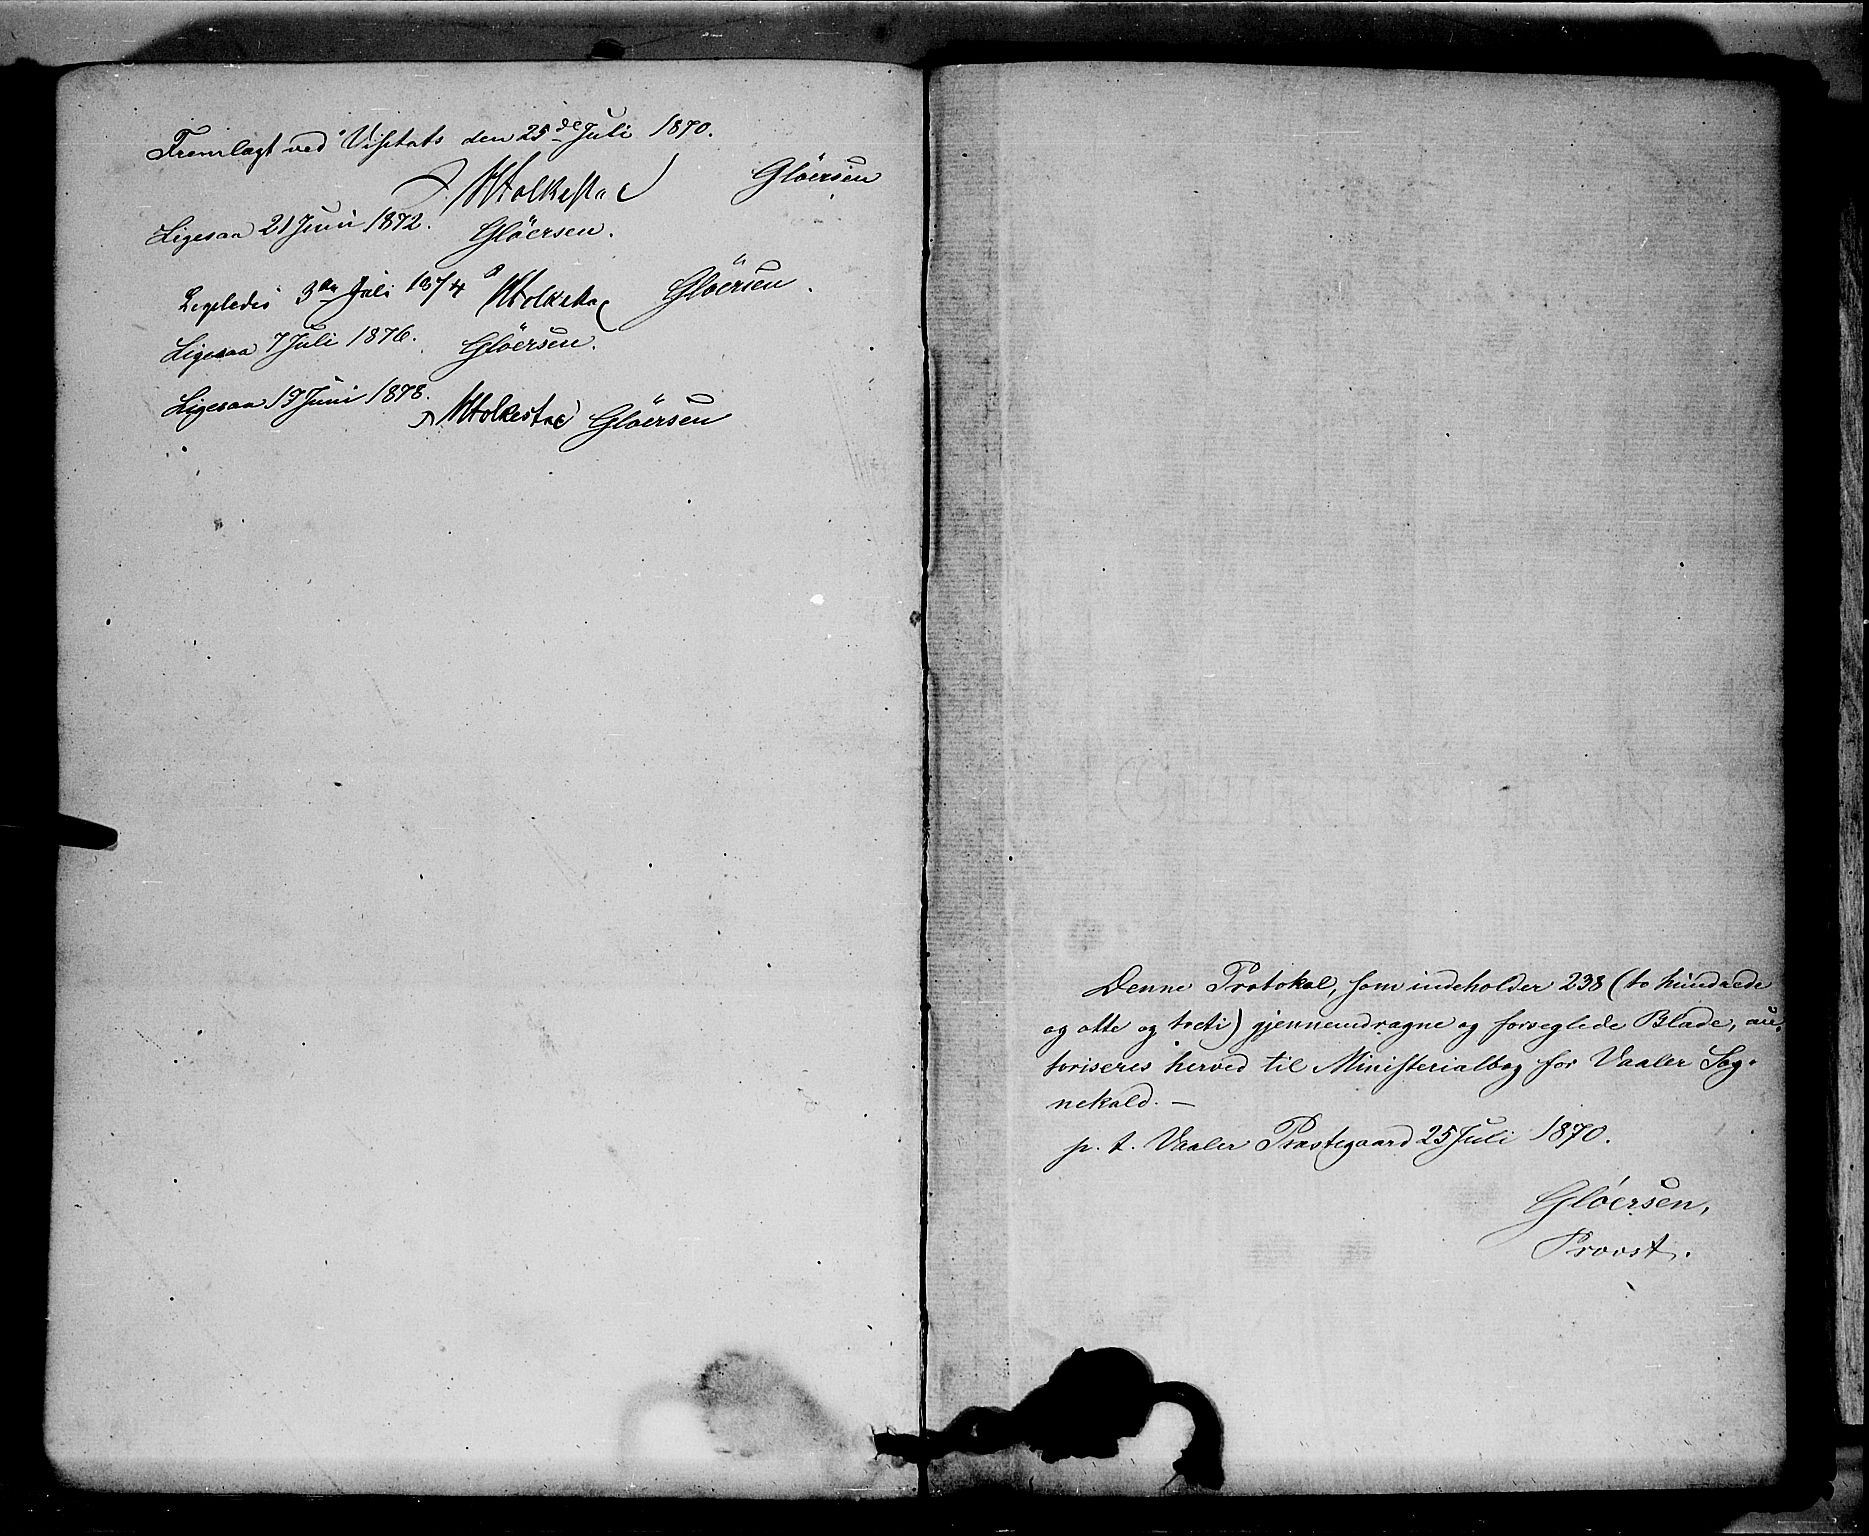 Fremlagt ved Visitats den 25de Juli 1870.
Gløersen
Ligesaa 21 Juni 1872. Gløersen.
3die Juli 1874 Gløersen.
Ligesaa 7 Juli 1876. Gløersen.
Ligesaa 19 Juni 1878.
Gløersen
Denne Protokol, som indeholder 238 (to hundrede
og otte og treti) gjennemdragne og forseglede Blade, au-
toriseres herved til Ministerialbog for Vaaler Sog-
nekald. —
p. t. Vaaler Præstegaard 25 Juli 1870.
Gløersen,
Provst.